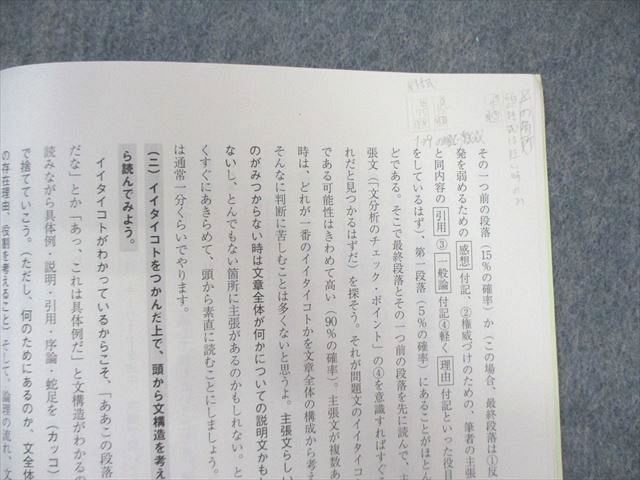 その一つ前の段落（15％の確率）か（この場合、最終段落は①反
発を弱めるための 感想 付記、②権威づけのための、筆者の主張
と同内容の 引用 ③ 一般論 付記④軽く 理由 付記といった役目
をしているはず）、第一段落（5％の確率）にあることがほとん
どである。そこで最終段落とその一つ前の段落を先に読んで、主
張文（「文分析のチェック・ポイント」の④を意識すればすぐ
れだと見つかるはずだ）を探そう。それが問題文のイイタイコ
である可能性はきわめて高い（90％の確率）。主張文が複数あ
時は、どれが一番のイイタイコトかを文章全体の構成から考え
そんなに判断に苦しむことは多くないと思うよ。主張文らしい
のがみつからない時は文章全体が何かについての説明文かもし
ないし、とんでもない箇所に主張があるのかもしれない。と
くすぐにあきらめて、頭から素直に読むことにしましょう。
は通常一分くらいでやります。
（二）イイタイコトをつかんだ上で、頭から文構造を考え
ら読んでみよう。
イイタイコトがわかっているからこそ、「ああこの段落
だな」とか「あっ、これは具体例だ」と文構造がわかるの
読みながら具体例・説明・引用・序論・蛇足を（カッコ）
で捨てていこう。（ただし、何のためにあるのか、文全体
の存在理由、役割を考えること）そして、論理の流れ、文